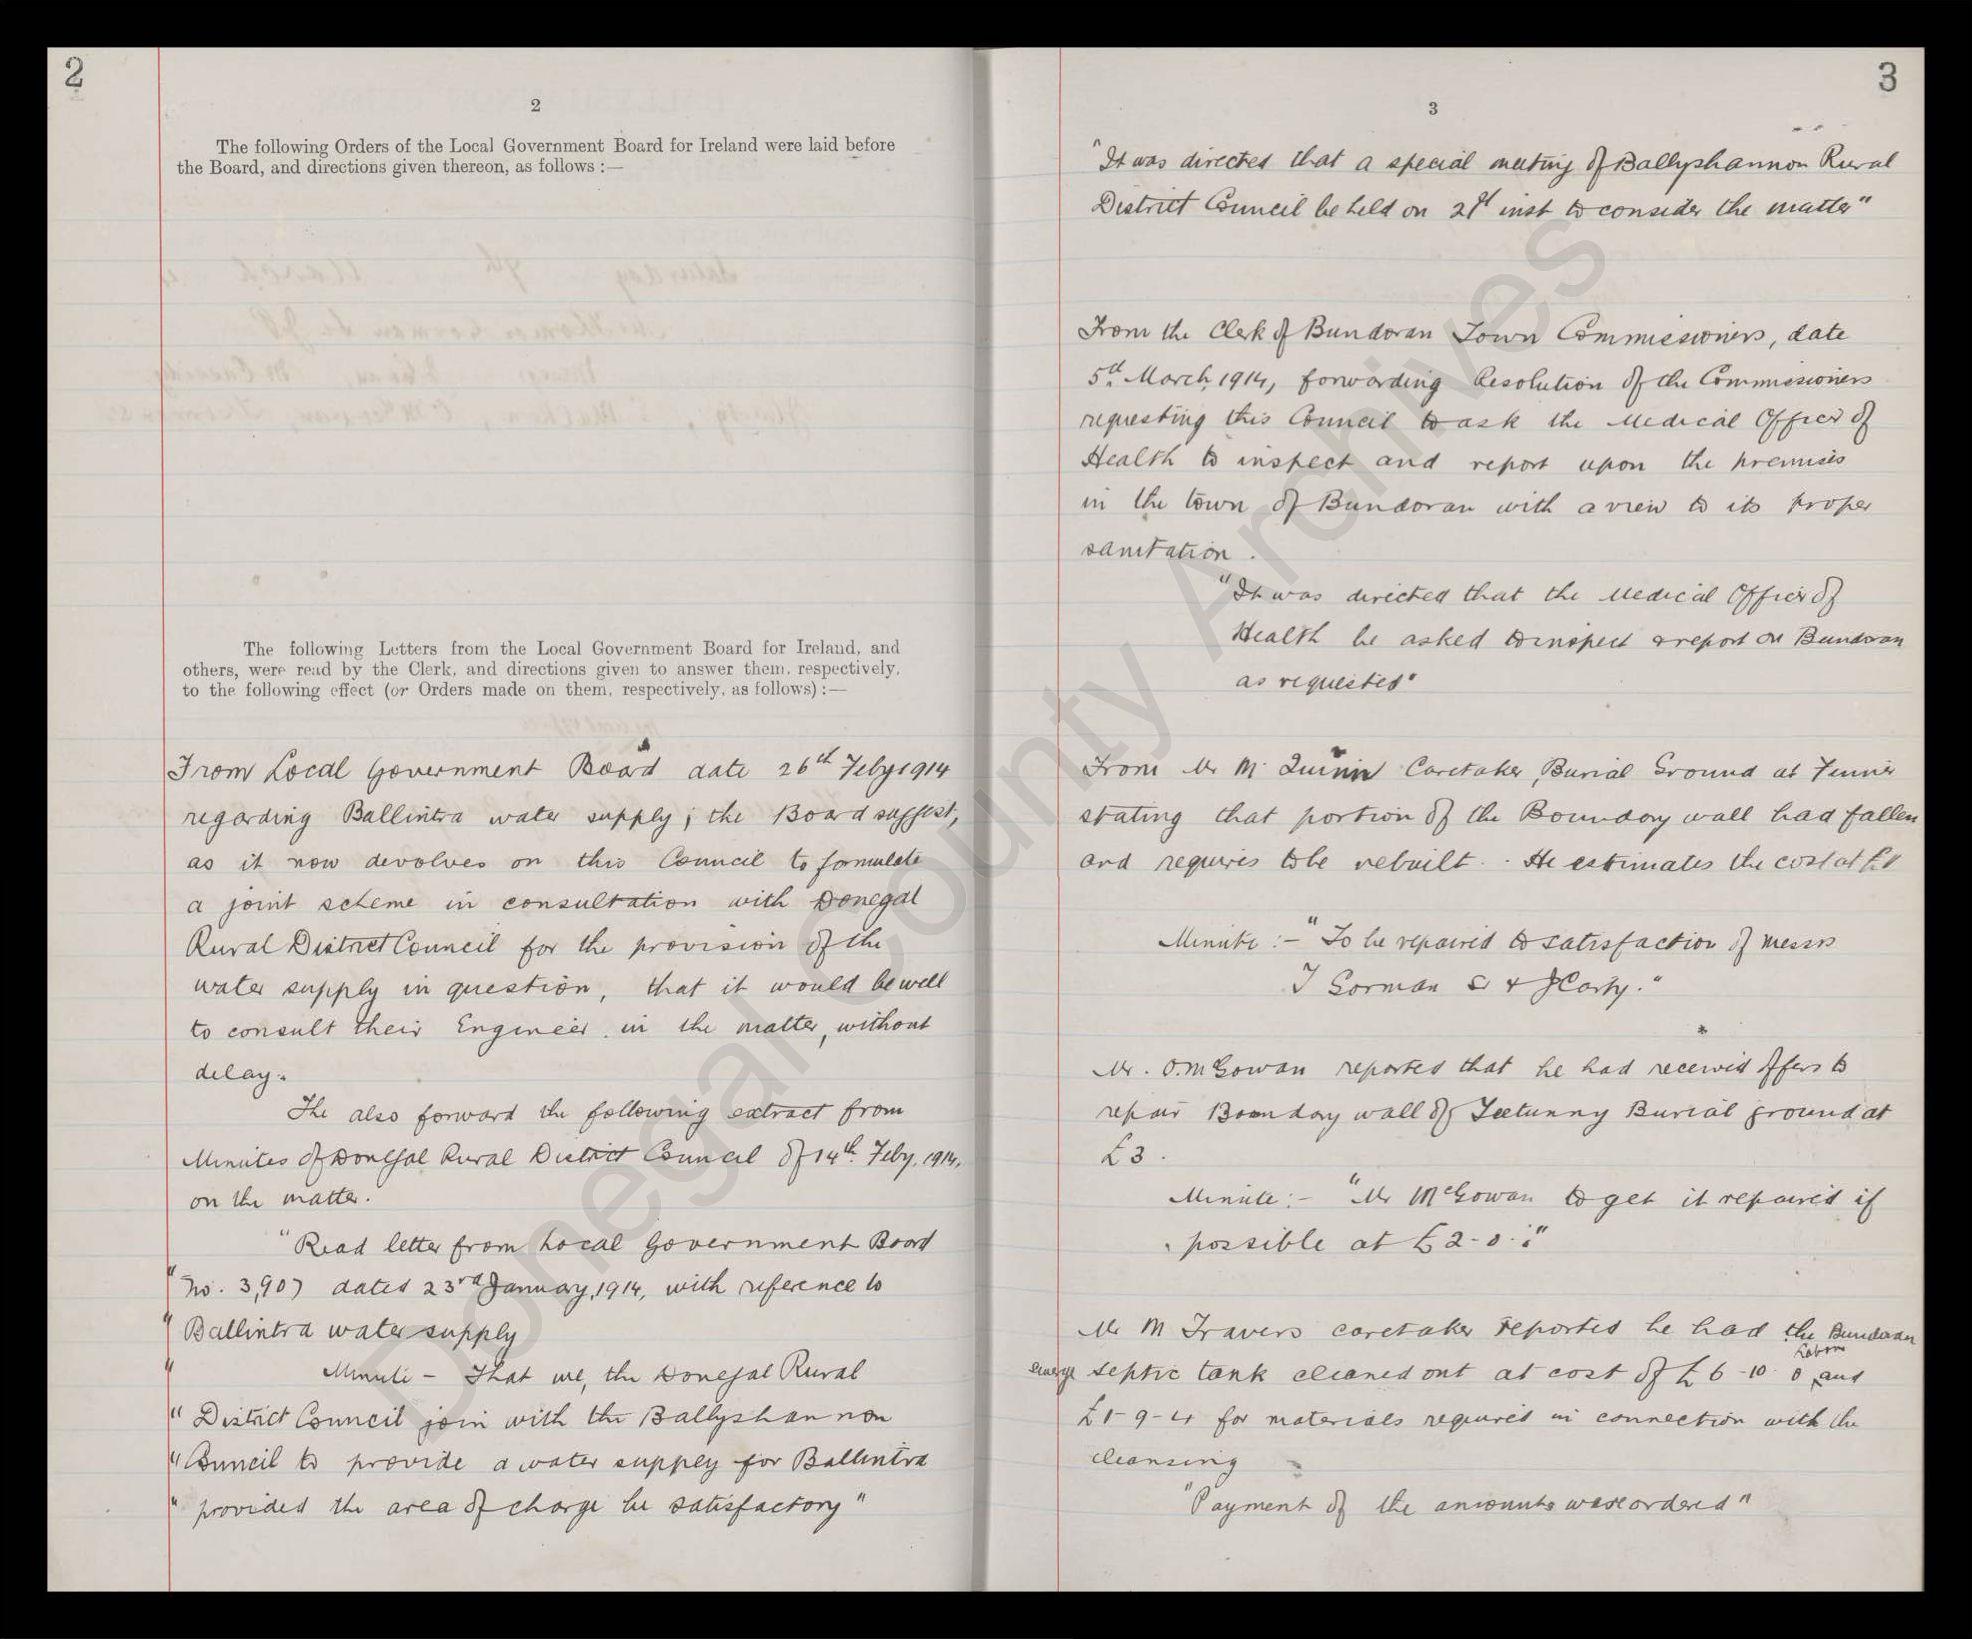 2
2
The following Orders of the Local Government Board for Ireland were laid before
the Board, and directions given thereon, as follows :—
The following Letters from the Local Government Board for Ireland, and
others, were read by the Clerk, and directions given to answer them, respectively,
to the following effect (or Orders made on them, respectively, as follows) :—
From Local Government Board date 26th Feby 1914
regarding Ballintra water supply; the Board suggest,
as it now devolves on this Council to formulate
a joint scheme in consultation with Donegal
Rural District Council for the provision of the
water supply in question, that it would be well
to consult their Engineer in the matter, without
delay.
The also forward the following extract from
Minutes of Donegal Rural District Council of 14th Feby. 1914,
on the matter.
"Read letter from Local Government Board
"No. 3,907 dated 23rd January, 1914, with reference to
"Ballintra water supply
" Minute - That we, the Donegal Rural
"District Council join with the Ballyshannon
"Council to provide a water supply for Ballintra
"provided the area of charge be satisfactory"
3
3
"It was directed that a special meeting of Ballyshannon Rural
District Council be held on inst to consider the matter"
From the Clerk of Bundoran Town Commissioners, date
5th March, 1914, forwarding Resolution of the Commissioners
requesting this Council to ask the Medical Officer of
Health to inspect and report upon the premises
in the town of Bundoran with a view to its proper
sanitation.
"It was directed that the Medical Officer of
Health be asked to inspect & report on Bundoran
as requested"
From Mr M. Quinn Caretaker, Burial Ground at Finner
stating that portion of the Boundary wall had fallen
and requires to be rebuilt. He estimates the cost at
Minute :- "To be repaired to satisfaction of Messrs
T Gorman Sr & J Carty."
Mr. O. McGowan reported that he had received offers to
repair Boundary wall of Teetunny Burial ground at
£3.
Minute :- "Mr McGowan to get it repaired if
possible at £2-0-"
Mr M Travers caretaker reported he had the Bundoran
sewage septic tank cleaned out at cost of £6-10-0 Labour and
£1-9-4 for materials required in connection with the
cleansing
"Payment of the amounts were ordered"
Donegal County Archives